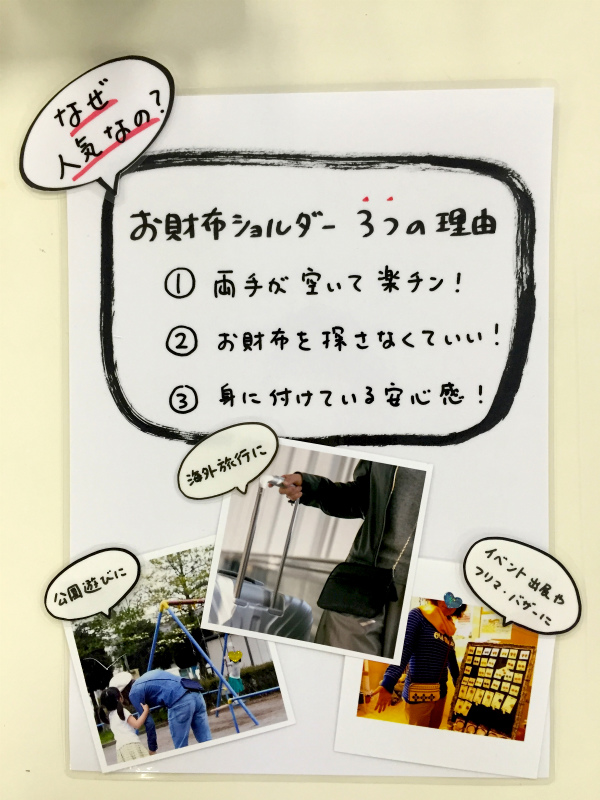 なぜ
人気なの？
お財布ショルダー 3つの理由
① 両手が空いて楽チン！
② お財布を探さなくていい！
③ 身に付けている安心感！
海外旅行に
公園遊びに
イベント出展や
フリマ・バザーに